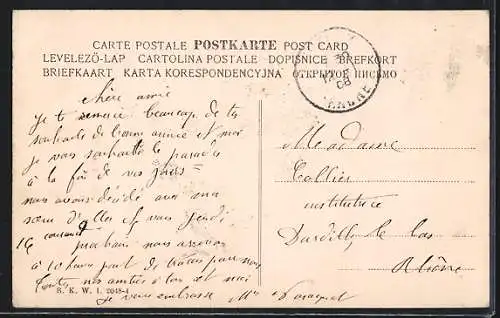 CARTE POSTALE POSTKARTE POST CARD
LEVELEZŐ-LAP CARTOLINA POSTALE DOPISNICE BREFKORT
BRIEFKAART KARTA KORESPONDENCYJNA ОТКРЫТОЕ ПИСЬМО
chère amie
je te remercie beaucoup de tes
souhaits de bonne année et moi
je vous souhaite le paradis
à la fin de vos jours =
nous avons décidé avec ma
sœur d'aller vous jeudi
16 courant
prochain nous
à 10 heures
nos amitiés à et moi
je vous embrasse Mme
B. K. W. I. 2048-4
Madame
Collier
institutrice
Dardilly le bas
Rhône